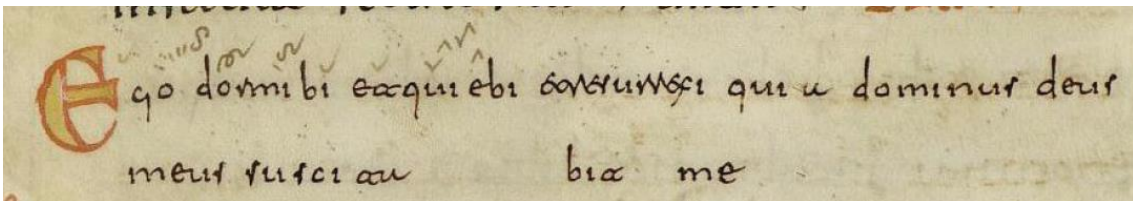 Ego dormibi et qui ebi et resurrexi qui a dominus deus
meus susci ta bit me